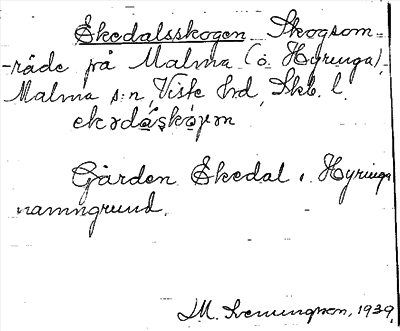 Ekedalsskogen Skogsom-
-råde på Malma (ö. Hyringa),
Malma s:n, Viste hrd, Skb. l.
Gården Ekedal i Hyringa
namngrund.
M. Svenungsson, 1939.